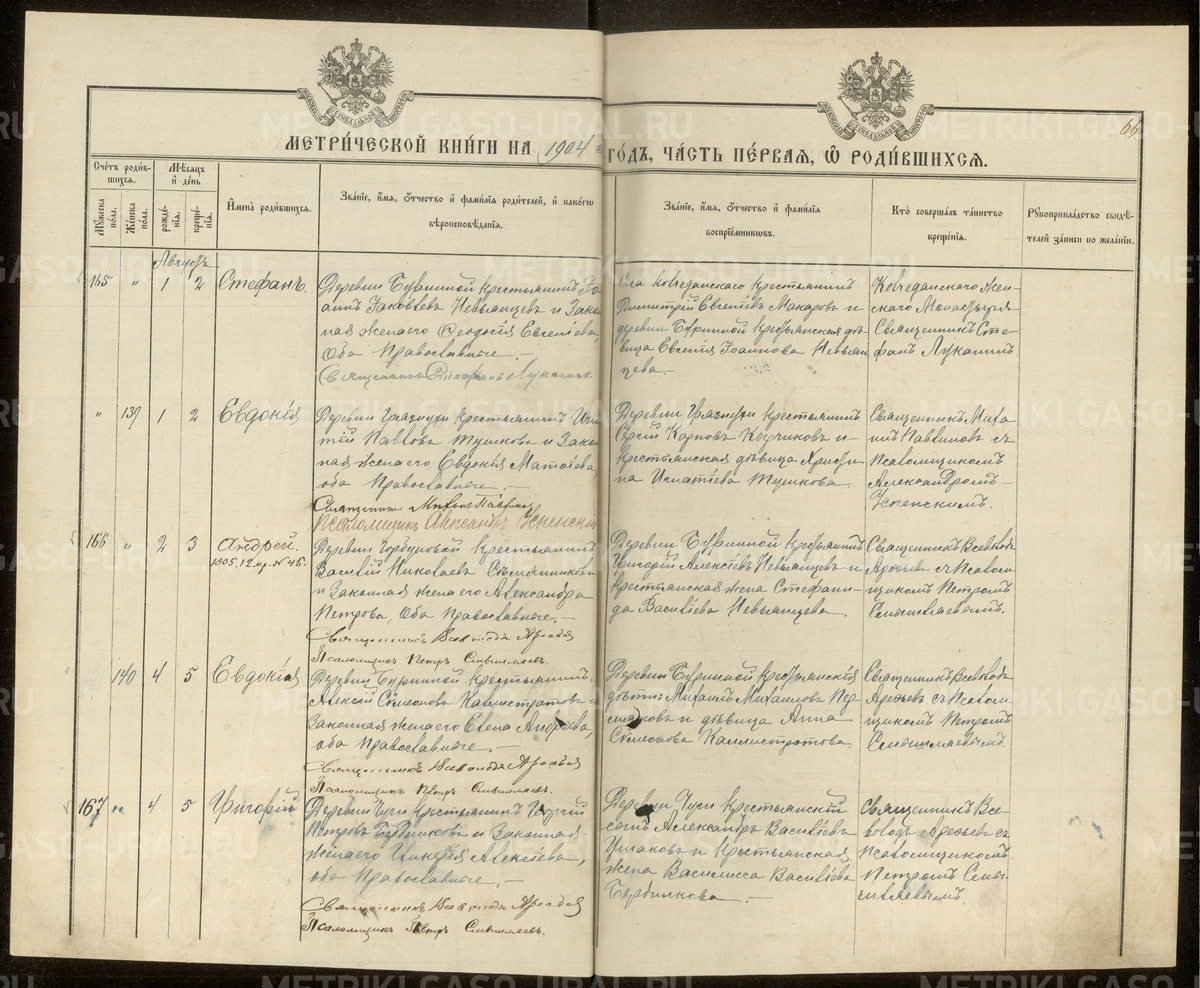 66.
МЕТРИ́ЧЕСКОЙ КНИ́ГИ НА 1904
ГО́ДЪ, ЧА́СТЬ ПЕ́РВАЯ, Ѽ РОДИ́ВШИХСѦ.
Сче́тъ роди́в-
шихся.
Мѣ́сяцъ
и҆ де́нь
Мꙋ́жеска
по́ла.
Же́нска
по́ла.
рожде-
нія.
креще-
нія.
И҆мена̀ роди́вшихся.
Зва́ніе, и҆́мя, ѻ҆́тчество и҆ фами́лія роди́телей, и҆ како́гѡ
вѣроисповѣ́данія.
Зва́ніе, и҆́мя, ѻ҆́тчество и҆ фами́лія
воспріе́мниковъ.
Кто̀ соверша́лъ та́инство
креще́нія.
Рꙋкоприкла́дство свидѣ́-
телей за́писи по жела́нію.
Августъ
165 „ 1 2 Стефанъ.
Деревни Буриной крестьянинъ Іо-
аннъ Іаковлевъ Невьянцевъ и Зако
ная жена его Ѳеодосія Евгеніева,
Оба Православные.—
Священникъ Стефанъ Луканинъ.
Села Колчеданскаго Крестьянинъ
Димитрій Евгеніевъ Макаровъ и
деревни Буриной Крестьянская дѣ-
вица Евгенія Іоаннова Невьян
цева.
Колчеданскаго Жен-
скаго Монастыря
Священникъ Сте-
фанъ Луканинъ
„ 139 1 2 Евдокія
Деревни Грязнухи крестьянинъ Игна
тій Павловъ Тушковъ и Зако
ная жена его Евдокія Матѳіева,
оба Православные.—
Священникъ Михаил
Псаломщикъ Александръ Успенскій
Деревни Грязнухи Крестьянинъ
Сергій Карповъ и
Крестьянская дѣвица Христи
на Игнатіева Тушкова.
Священникъ Миха
илъ съ
Псаломщикомъ
Александромъ
Успенскимъ.
166 „ 2 3 Андрей.
Деревни Горбуновой Крестьянинъ
Василій Николаевъ
и Законная жена его Александра
Петрова, Оба Православные.—
Священникъ Всеволодъ Арефьевъ
Псаломщикъ Петръ Смышляевъ.
Деревни Буриной Крестьянинъ
Григорій Алексіевъ Невьянцевъ и
крестьянская жена Степани-
да Василіева Невьянцева.
Священникъ Всеволодъ
Арефьевъ съ Псалом
щикомъ Петромъ
Смышляевымъ.
140 4 5 Евдокія
Деревни Буриной Крестьянинъ
Алексій Симеоновъ Каллистратовъ и
Законная жена его Елена Андреева,
оба Православные.—
Священникъ Всеволодъ Арефьевъ
Псаломщикъ Петръ Смышляевъ.
Деревни Буриной Крестьянскія
дѣти: Михаилъ Михаиловъ Пер
шаковъ и дѣвица Анна
Симеонова Каллистратова.
Священникъ Всеволодъ
Арефьевъ съ Псалом
щикомъ Петромъ
Смышляевымъ.
167 „ 4 5 Григорій
Деревни Чуги Крестьянинъ Георгій
Петровъ Бердниковъ и Законная
жена его Гликерія Алексіева,
оба Православные.—
Священникъ Всеволодъ Арефьевъ
Псаломщикъ Петръ Смышляевъ.
Деревни Чуги Крестьянскій
сынъ Александръ Василіевъ
Ушаковъ и Крестьянская
жена Василисса Василіева
Бердникова.—
Священникъ Все-
володъ Арефьевъ съ
Псаломщикомъ
Петромъ Смы-
шляевымъ.
METRIKI.GASO-URAL.RU